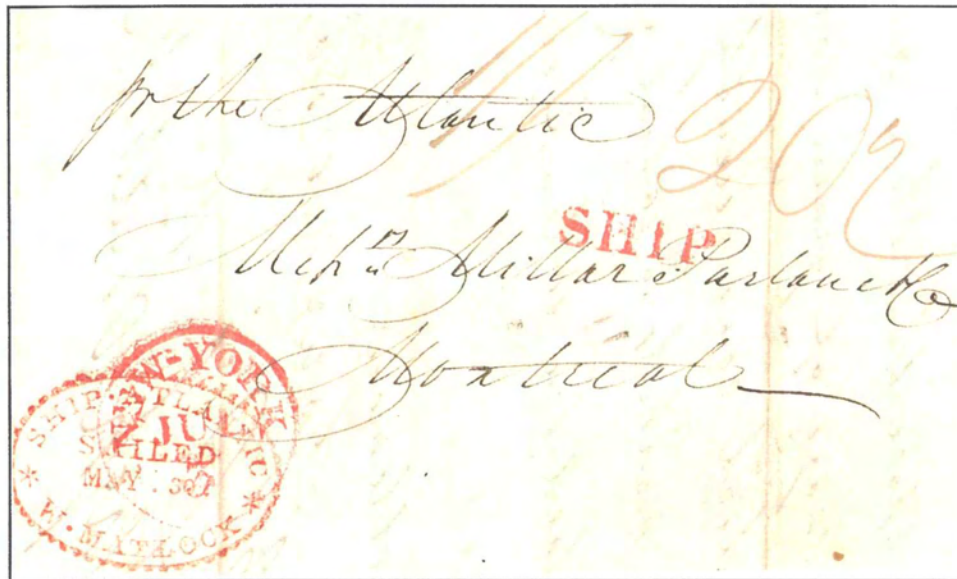 pr the Atlantic
SHIP
Millar Parlane & Co
Montreal
NEW-YORK
JUL
SHIP ATLANTIC
SAILED
MAY
W. MATLOCK